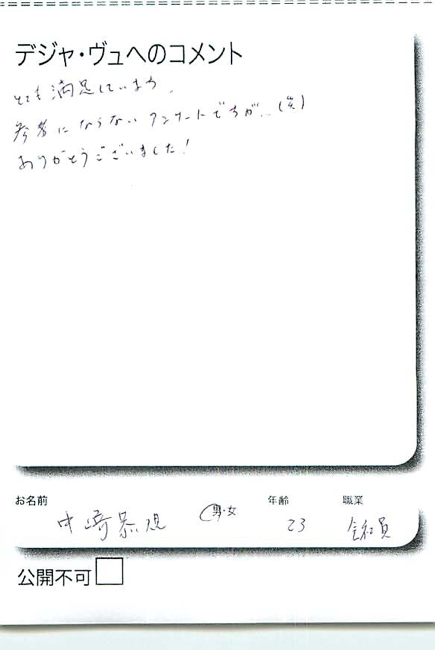 デジャ・ヴュへのコメント
とても満足しています。
参考にならないアンケートですが…(笑)
ありがとうございました!
お名前 男・女 年齢 職業
中崎 23 会社員
公開不可